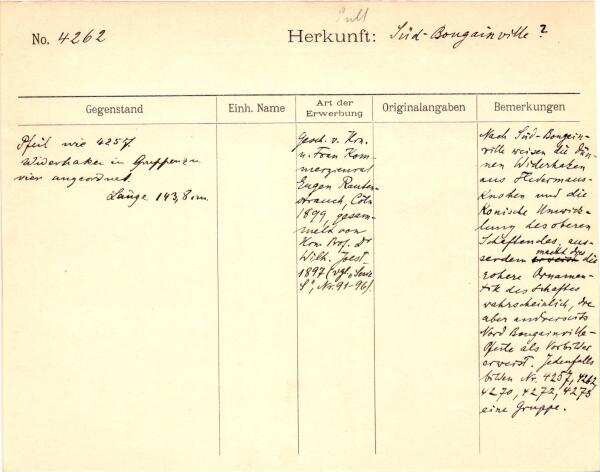 Pult
No. 4262
Herkunft: Süd-Bougainville?
Gegenstand
Einh. Name
Art der
Erwerbung
Originalangaben
Bemerkungen
Pfeil wie 4257
Widerhaken in Gruppen zu
vier angeordnet
Länge 143,8 cm
Gesch. v. Hrn.
u. Frau Kom-
merzienrat
Eugen Rauten-
strauch, Cöln
1899, gesam-
melt von
Hrn Prof. Dr
Wilh. Joest
1897 (vgl. "Serie
S", Nr. 91-96)
Nach Süd-Bougain-
ville weisen die dün-
nen Widerhaken
aus Fledermaus-
knochen und die
konische Umwick-
lung des oberen
Schaftendes, aus-
serdem macht dies die
rohere Ornamen-
tik des Schaftes
wahrscheinlich, die
aber andrerseits
Nord Bougainville-
Pfeile als Vorbilder
erweist. Jedenfalls
bilden Nr. 4257, 4262,
4270, 4272, 4275
eine Gruppe.